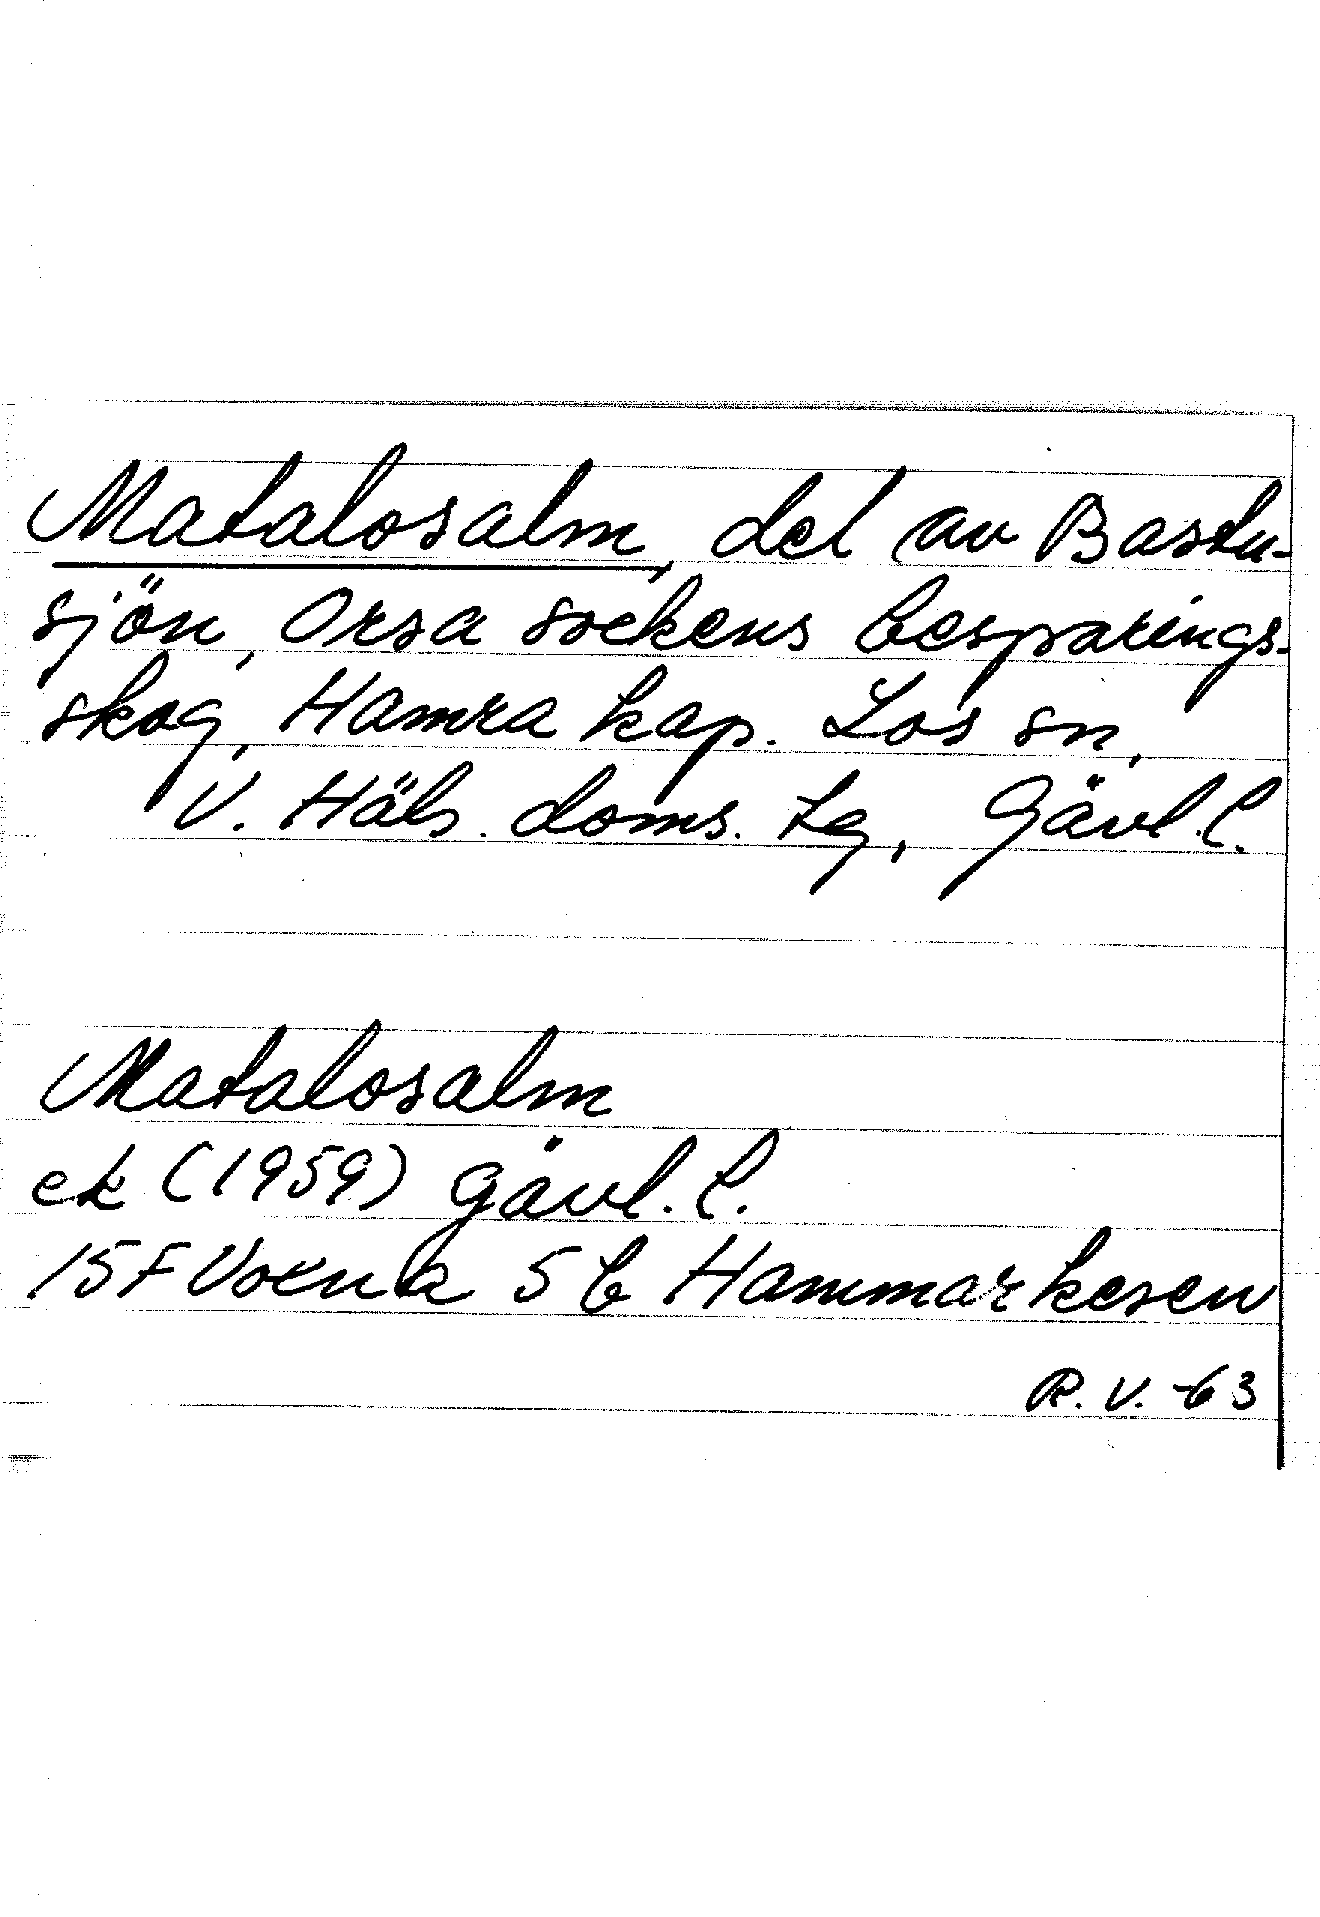 Matalosalm, del av Bastu-
sjön, Orsa sockens besparings-
skog, Hamra kap. Los sn,
V. Häls. doms. tg, Gävl. l.
Matalosalm
ek (1959) Gävl. l.
15F Voxna 5b Hammarkesen
R. V. -63